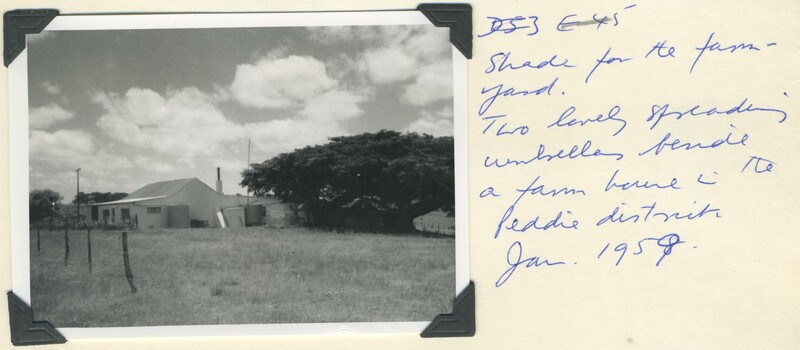 DS3 E 45
Shade for the farm-
yard.
Two lovely spreading
umbrellas beside
a farm house in the
Peddie district
Jan. 1959.